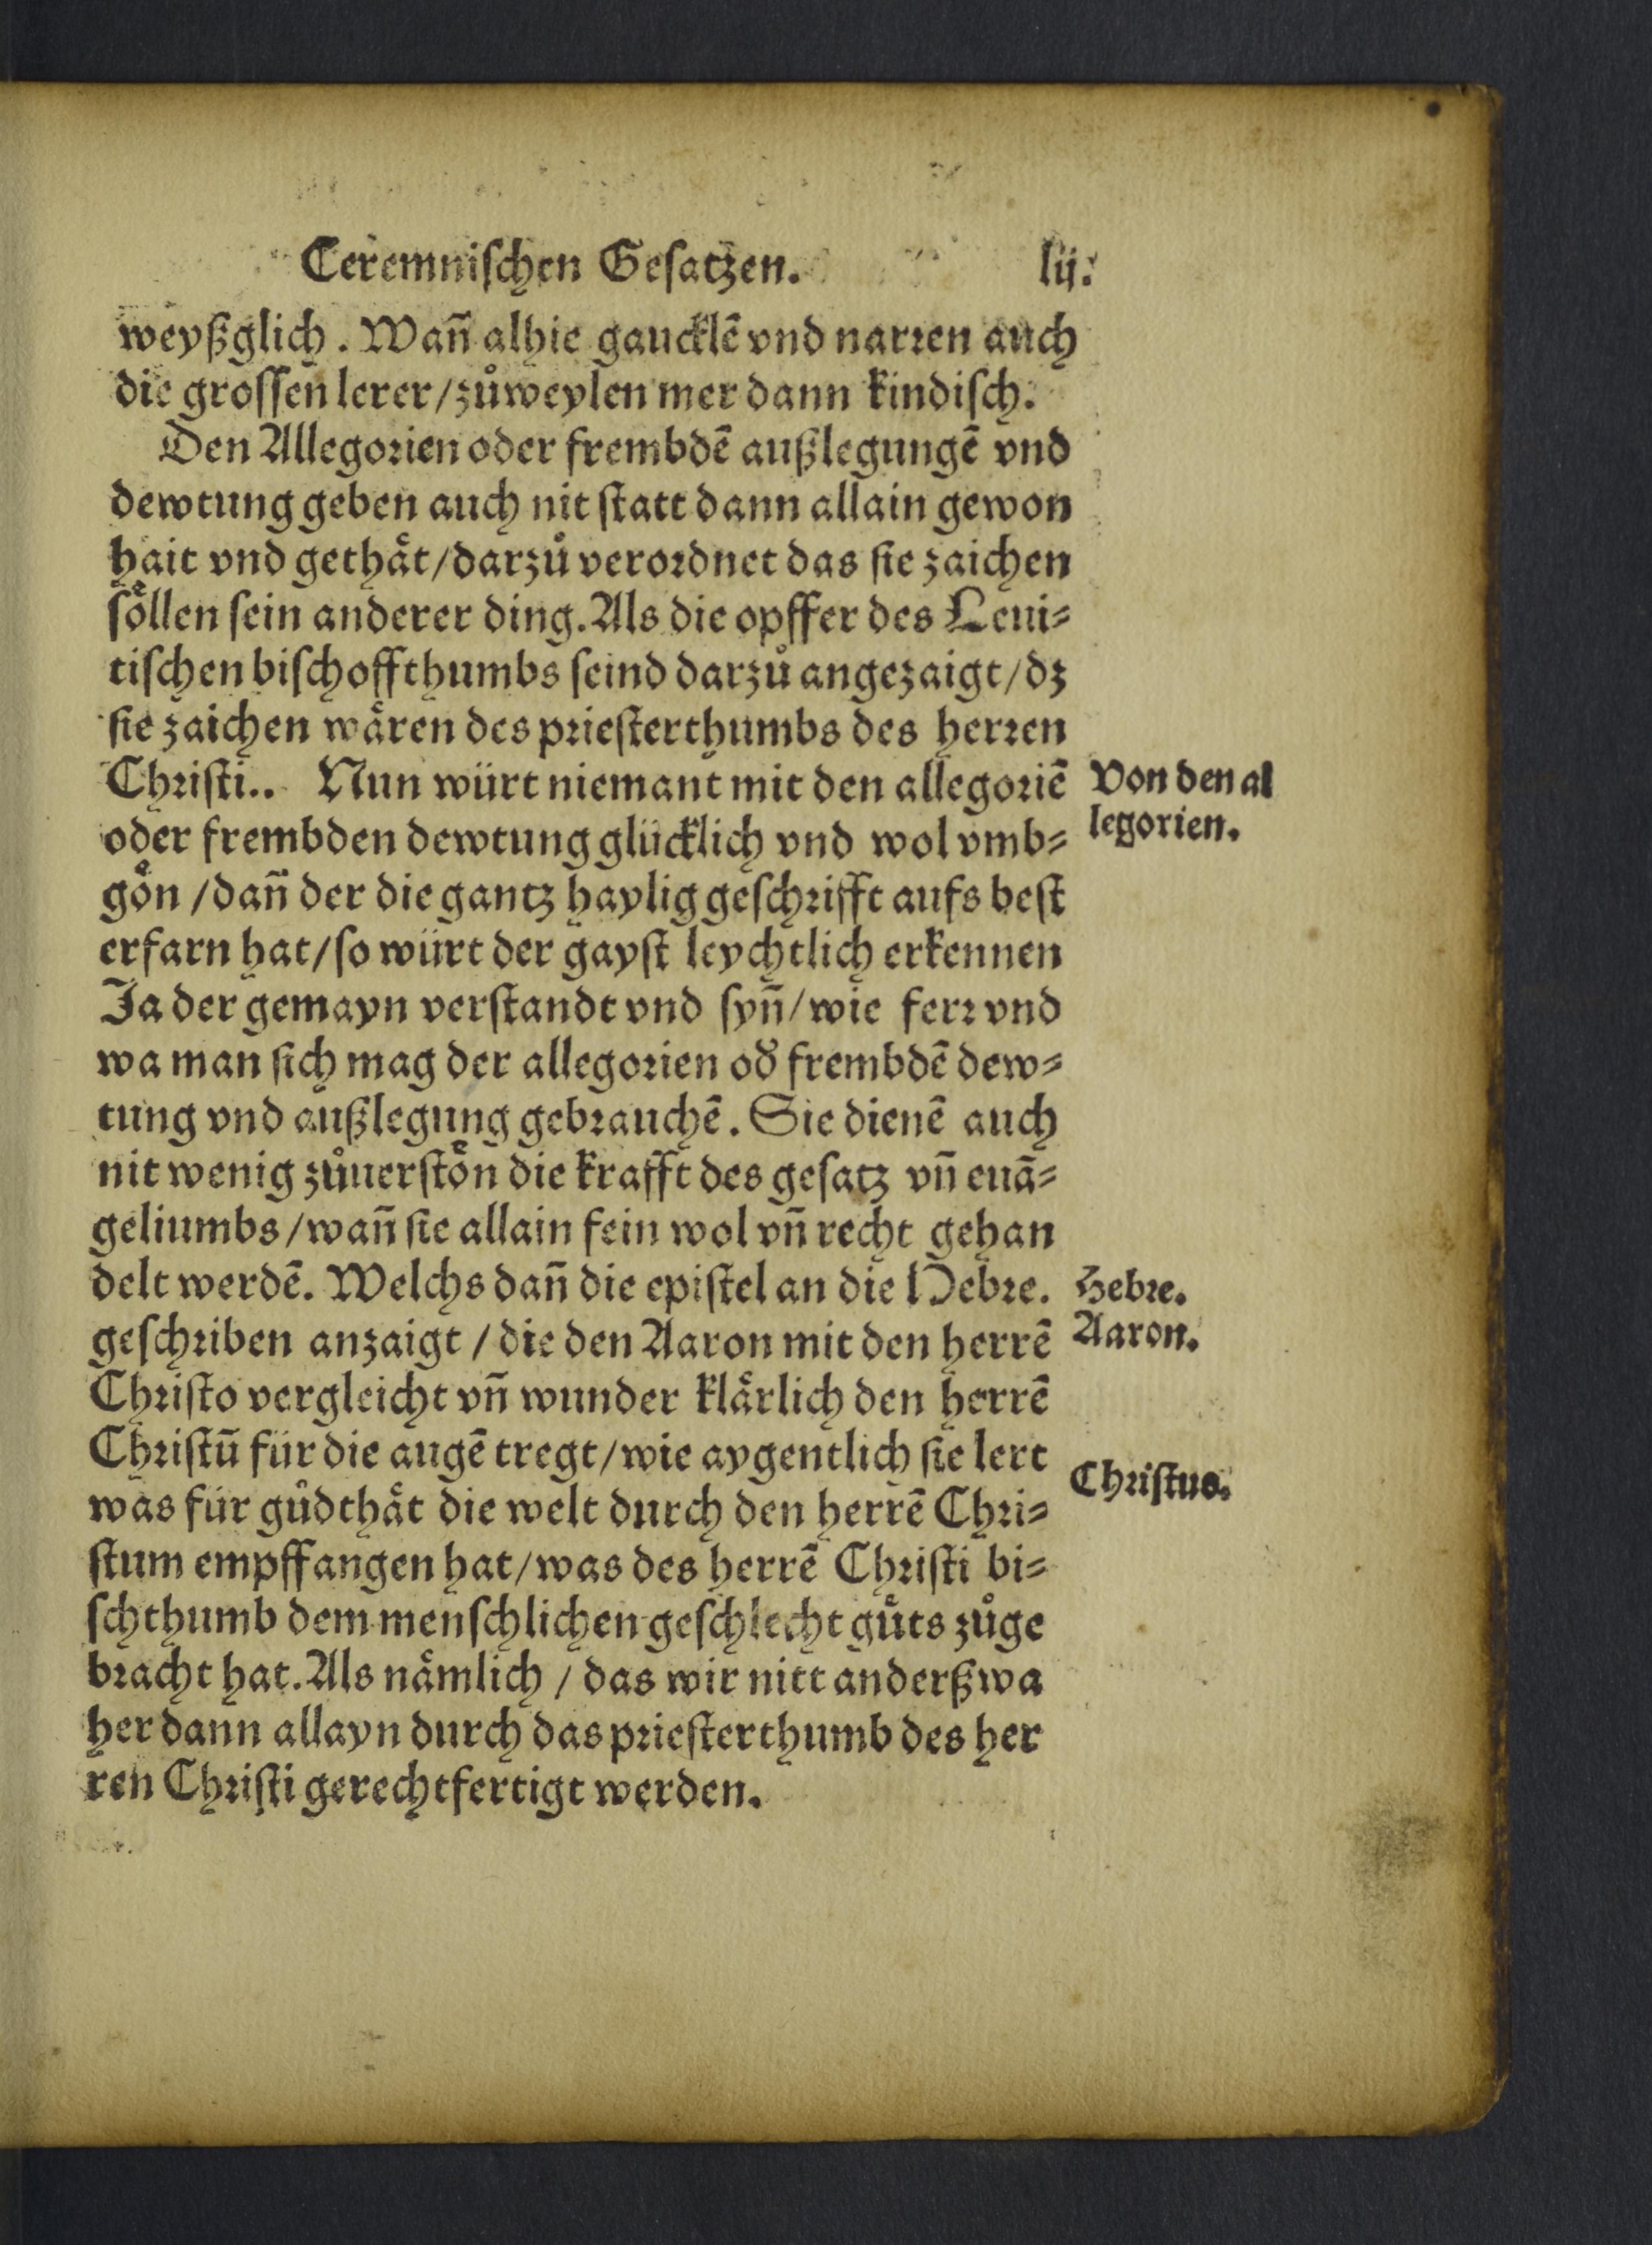 Ceremnischen Gesatzen. lij.
weyßglich. Wañ alhie gaucklē vnd narren auch
die grossen lerer/zuͦweylen mer dann kindisch.
Den Allegorien oder frembdē außlegungē vnd
dewtung geben auch nit statt dann allain gewon
hait vnd gethaͤt/darzuͦ verordnet das sie zaichen
soͤllen sein anderer ding. Als die opffer des Leui⸗
tischen bischoffthumbs seind darzuͦ angezaigt/dz
sie zaichen waͤren des priesterthumbs des herren
Christi.. Nun würt niemant mit den allegoriē
Von den al
oder frembden dewtung glücklich vnd wol vmb⸗
legorien.
goͤn /dañ der die gantz haylig geschrifft aufs best
erfarn hat/so würt der gayst leychtlich erkennen
Ja der gemayn verstandt vnd syñ/wie ferr vnd
wa man sich mag der allegorien od̄ frembdē dew⸗
tung vnd außlegung gebrauchē. Sie dienē auch
nit wenig zuͦuerstoͤn die krafft des gesatz vñ euā⸗
geliumbs/wañ sie allain fein wol vñ recht gehan
delt werdē. Welchs dañ die epistel an die Hebre.
Hebre.
geschriben anzaigt / die den Aaron mit den herrē
Aaron.
Christo vergleicht vñ wunder klaͤrlich den herrē
Christū für die augē tregt/wie aygentlich sie lert
Christus.
was für guͦdthaͤt die welt durch den herrē Chri⸗
stum empffangen hat/was des herrē Christi bi⸗
schthumb dem menschlichen geschlecht guͦts zuͦge
bracht hat. Als naͤmlich / das wir nitt anderßwa
her dann allayn durch das priesterthumb des her
ren Christi gerechtfertigt werden.